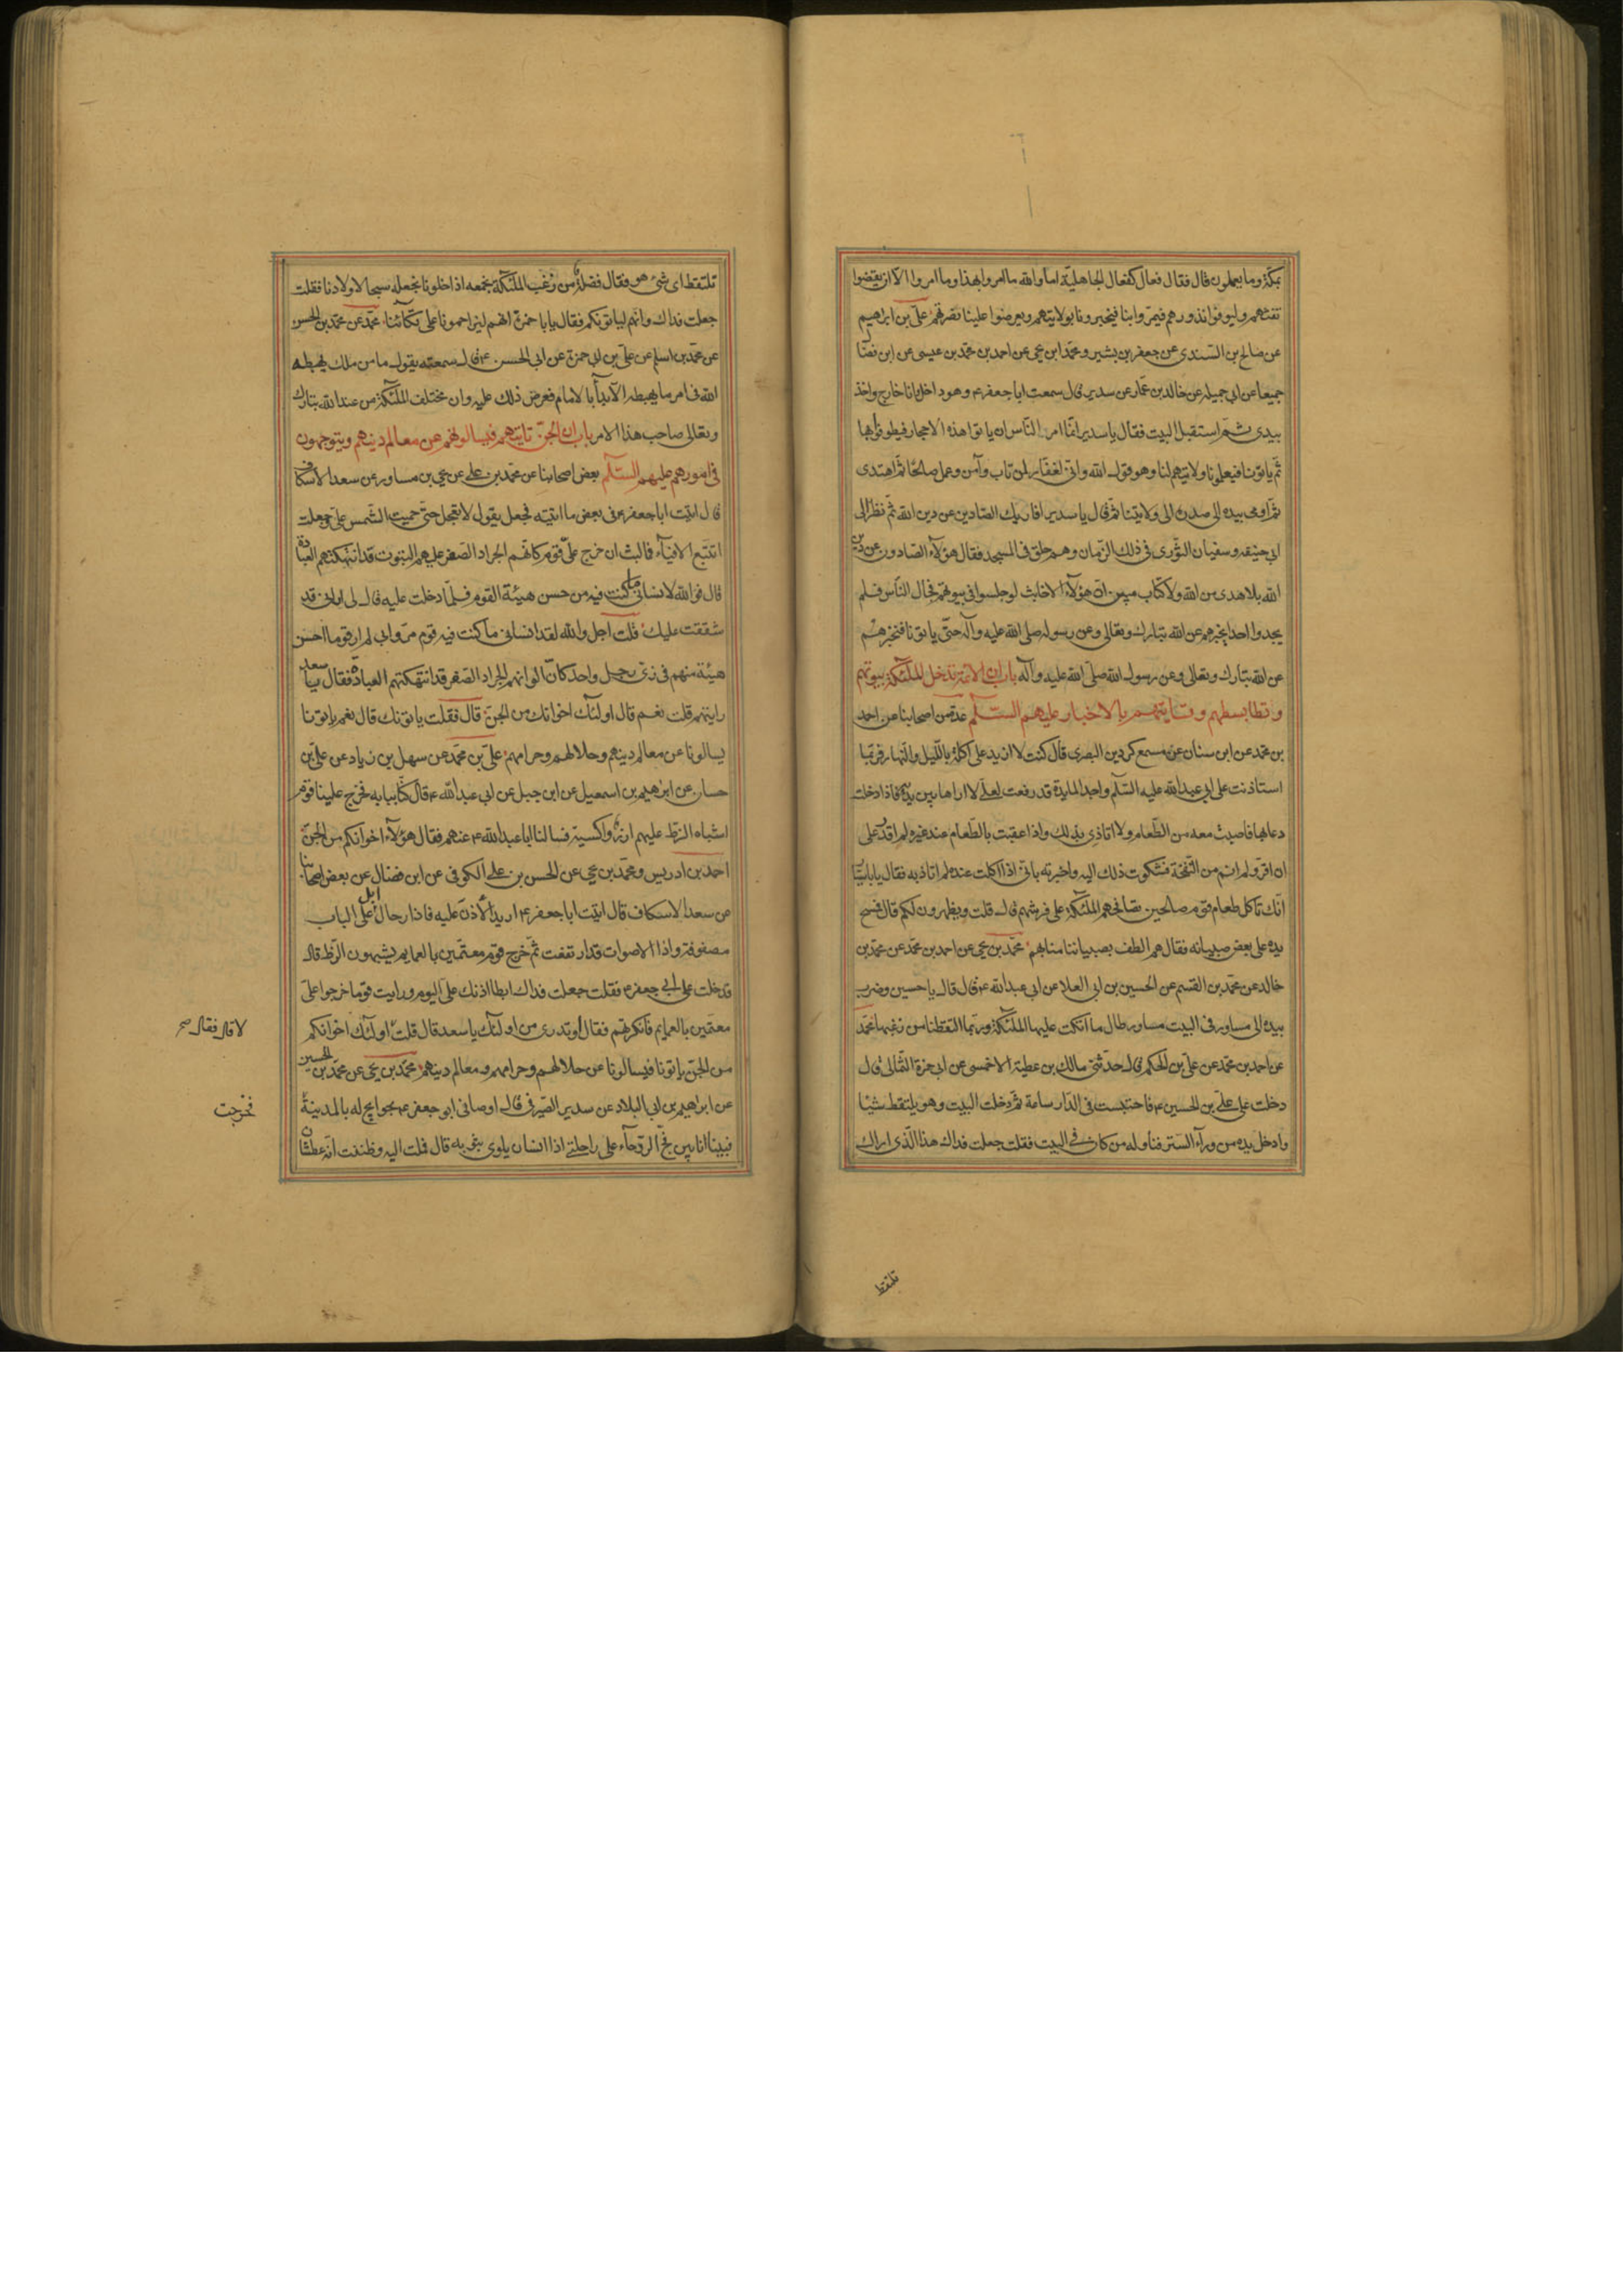 بمكة وما يعملون قال فقال فعال كفعال الجاهلية اما والله ما امروا بهذا وما امروا الا ان يقضوا
تفثهم وليوفوا نذورهم فيمروا بنا فيخبرونا بولايتهم ويعرضوا علينا نصرتهم علي بن ابراهيم
عن صالح بن السندي عن جعفر بن بشير ومحمد بن يحيى عن احمد بن محمد بن عيسى عن ابن فضال
جميعا عن ابي جميله عن خالد بن عمار عن سدير قال سمعت ابا جعفر ع وهو داخل وانا خارج واخذ
بيدي ثم استقبل البيت فقال يا سدير انما امر الناس ان ياتوا هذه الاحجار فيطوفوا بها
ثم ياتونا فيعلمونا ولايتهم لنا وهو قول الله واني لغفار لمن تاب وآمن وعمل صالحا ثم اهتدى
ثم اومى بيده الى صدره الى ولايتنا ثم قال يا سدير افاريك الصادين عن دين الله ثم نظر الى
ابي حنيفه وسفيان الثوري في ذلك الزمان وهم حلق في المسجد فقال هؤلآء الصادون عن دين
الله بلا هدى من الله ولا كتاب مبين ان هؤلآء الاخابث لو جلسوا في بيوتهم فجال الناس فلم
يجدوا احدا يخبرهم عن الله تبارك وتعالى وعن رسوله صلى الله عليه وآله حتى ياتونا فنخبرهم
عن الله تبارك وتعالى وعن رسول الله صلى الله عليه وآله باب ان الائمة تدخل الملئكة بيوتهم
وتطا بسطهم وتاتيهم بالاخبار عليهم السلم عدة من اصحابنا عن احمد
بن محمد عن ابن سنان عن مسمع كردين البصري قال كنت لا ازيد على اكلة بالليل والنهار فربما
استاذنت على ابي عبد الله عليه السلم واجد المايدة قد رفعت لعلي لا اراها بين يديه فاذا دخلت
دعا بها فاصيب معه من الطعام ولا اتاذي بذلك واذا عقبت بالطعام عند غيره لم اقدر على
ان اقر ولم انم من النفخة فشكوت ذلك اليه واخبرته باني اذا اكلت عنده لم اتاذ به فقال يا با سيا
انك تاكل طعام قوم صالحين تصافحهم الملئكة على فرشهم قال قلت ويظهرون لكم قال فمسح
يده على بعض صبيانه فقال هم الطف بصبياننا منا بهم محمد بن يحيى عن احمد بن محمد عن محمد بن
خالد عن محمد بن القسم عن الحسين بن ابي العلا عن ابي عبد الله ع قال قال يا حسين وضرب
بيده الى مساور في البيت مساور طال ما اتكت عليها الملئكة وربما التقطنا من زغبها محمد
عن احمد بن محمد عن علي بن الحكم قال حدثني مالك بن عطية الاحمسي عن ابي حمزة الثمالي قال
دخلت على علي بن الحسين ع فاحتبست في الدار ساعة ثم دخلت البيت وهو يلتقط شيئا
وادخل يده من ورآء الستر فناوله من كان في البيت فقلت جعلت فداك هذا الذي اراك
تلتقط
تلتقط اي شئ هو فقال فضلة من زغب الملئكة نجمعه اذا خلونا نجعله سيحا لاولادنا فقلت
جعلت فداك وانهم لياتونكم فقال يا با حمزة انهم ليزاحمونا على تكآئنا محمد عن محمد بن الحسن
عن محمد بن اسلم عن علي بن ابي حمزة عن ابي الحسن ع قال سمعته يقول ما من ملك يهبطه
الله في امر ما يهبطه الا بدأ بالامام فعرض ذلك عليه وان مختلف الملئكة من عند الله تبارك
وتعالى صاحب هذا الامر باب ان الجن تاتيهم فيسالونهم عن معالم دينهم ويتوجهون
في امورهم عليهم السلم بعض اصحابنا عن محمد بن علي عن يحيى بن مساور عن سعد الاسكاف
قال اتيت ابا جعفر ع في بعض ما اتيته فجعل يقول لا تعجل حتى حميت الشمس علي وجعلت
اتتبع الافيآء فما لبث ان خرج علي قوم كانهم الجراد الصفر عليهم البتوت قد انتهكتهم العبادة
قال فوالله لانساني ما كنت فيه من حسن هيئة القوم فلما دخلت عليه قال لي اراني قد
شققت عليك قلت اجل والله لقد انساني ما كنت فيه قوم مروا بي لم ار قوما احسن
هيئة منهم في زي رجل واحد كان الوانهم الجراد الصفر قد انتهكتهم العبادة فقال يا سعد
رايتهم قلت نعم قال اولئك اخوانك من الجن قال فقلت ياتونك قال نعم ياتونا
يسالونا عن معالم دينهم وحلالهم وحرامهم علي بن محمد عن سهل بن زياد عن علي بن
حسان عن ابرهيم بن اسمعيل عن ابن جبل عن ابي عبد الله ع قال كنا ببابه فخرج علينا قوم
اشباه الزط عليهم ازر واكسية فسالنا ابا عبد الله ع عنهم فقال هؤلآء اخوانكم من الجن
احمد بن ادريس ومحمد بن يحيى عن الحسن بن علي الكوفي عن ابن فضال عن بعض اصحابنا
عن سعد الاسكاف قال اتيت ابا جعفر ع اريد الاذن عليه فاذا رحال ابل على الباب
مصفوفة واذا الاصوات قد ارتفعت ثم خرج قوم معتمين بالعمايم يشبهون الزط قال
فدخلت على ابي جعفر ع فقلت جعلت فداك ابطا اذنك علي اليوم ورايت قوما خرجوا علي
معتمين بالعمايم فانكرتهم فقال أو تدري من اولئك يا سعد قال قلت اولئك اخوانكم
لا قال فقال صح
من الجن ياتونا فيسالونا عن حلالهم وحرامهم ومعالم دينهم محمد بن يحيى عن محمد بن الحسين
عن ابراهيم بن ابي البلاد عن سدير الصيرفي قال اوصاني ابو جعفر ع بحوايج له بالمدينة
فخرجت
فبينا انا بين فج الروحآء على راحلتي اذا انسان يلوي بثوبه قال فملت اليه وظننت انه عطشان